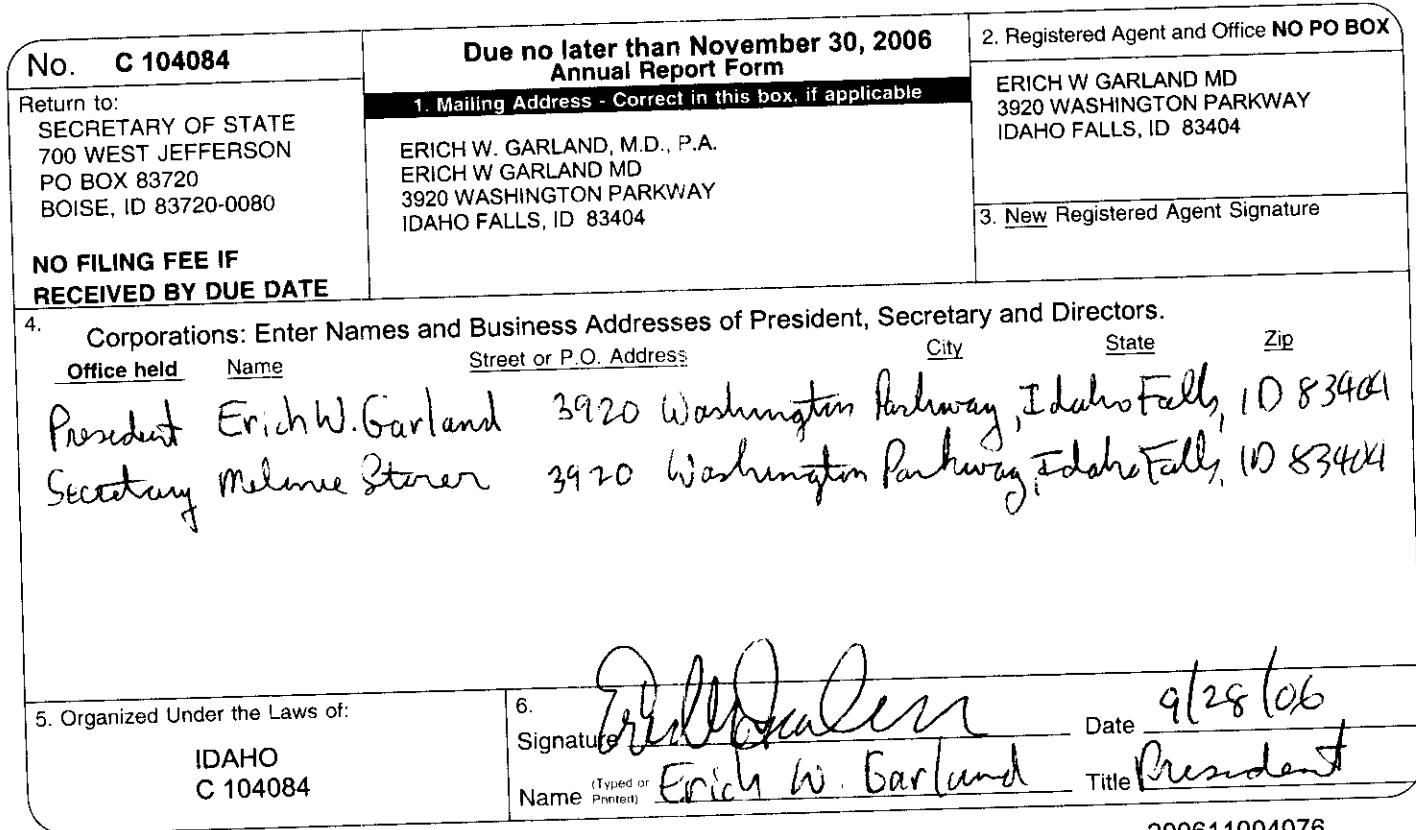 No. C 104084
Return to:
SECRETARY OF STATE
700 WEST JEFFERSON
PO BOX 83720
BOISE, ID 83720-0080
NO FILING FEE IF
RECEIVED BY DUE DATE
Due no later than November 30, 2006
Annual Report Form
1. Mailing Address - Correct in this box, if applicable
ERICH W. GARLAND, M.D., P.A.
ERICH W GARLAND MD
3920 WASHINGTON PARKWAY
IDAHO FALLS, ID 83404
2. Registered Agent and Office NO PO BOX
ERICH W GARLAND MD
3920 WASHINGTON PARKWAY
IDAHO FALLS, ID 83404
3. New Registered Agent Signature
4. Corporations: Enter Names and Business Addresses of President, Secretary and Directors.
Office held Name Street or P.O. Address City State Zip
President Erich W. Garland 3920 Washington Parkway, Idaho Falls, ID 83404
Secretary Melanie Storer 3920 Washington Parkway, Idaho Falls, ID 83404
5. Organized Under the Laws of:
IDAHO
C 104084
6.
Signature Date 9/28/06
Name (Typed or Printed) Erich W. Garland Title President
200611004076